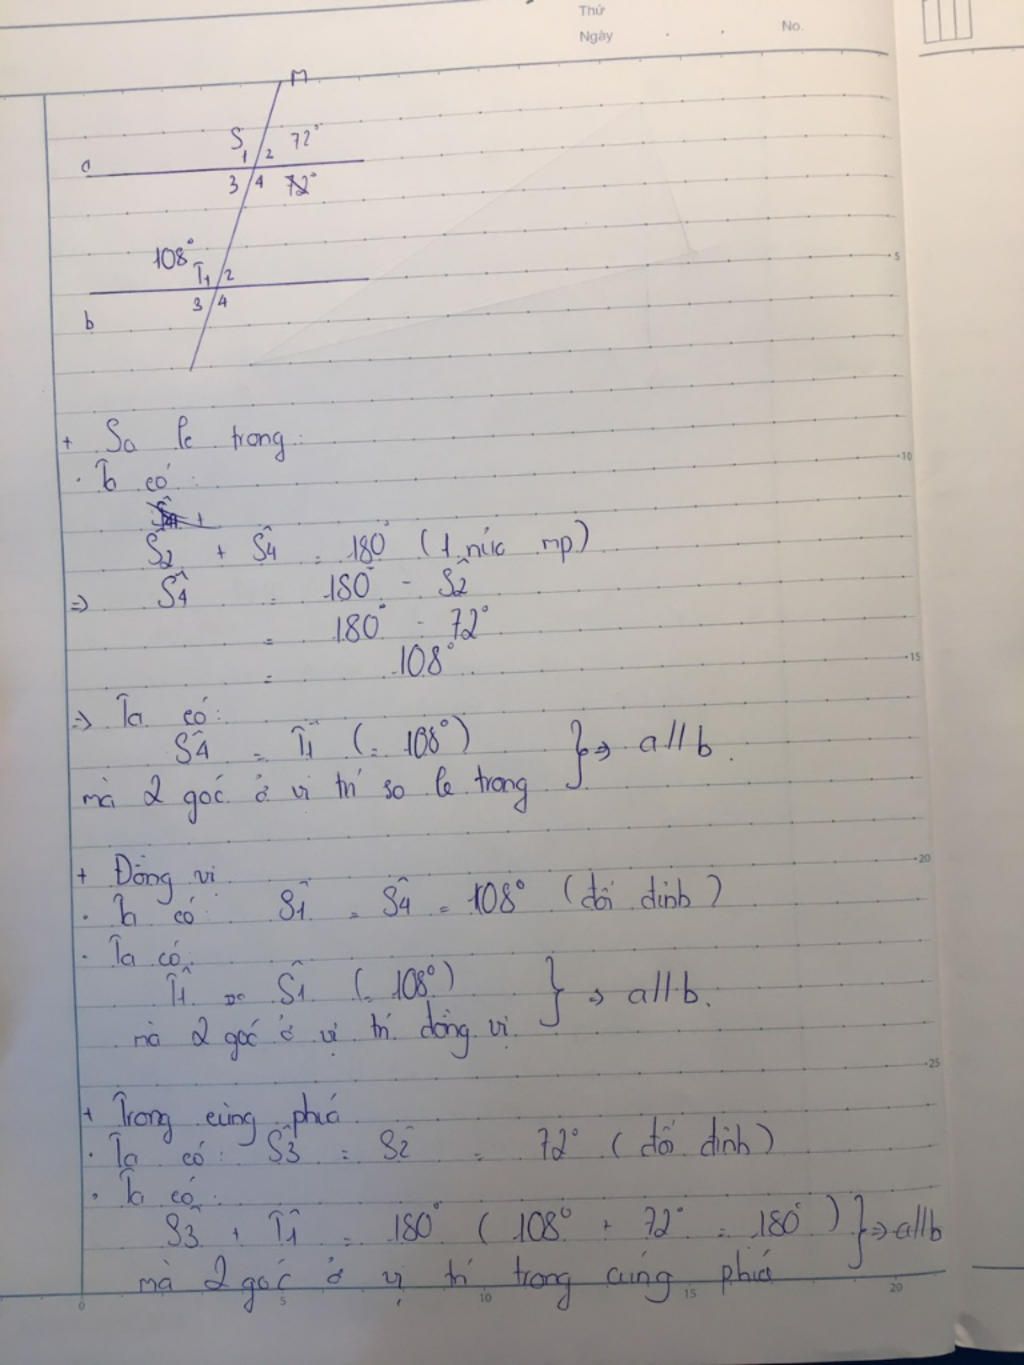 Thứ
Ngày . . No.
M
S 1 2 72°
a
3 4 72°
108°
T 1 2
3 4
b
5
+ So le trong:
· Ta có:
Ŝ2 + Ŝ4 = 180° (1 nửa mp)
⇒ Ŝ4 = 180° - Ŝ2
= 180° - 72°
10
= 108°
15
⇒ Ta có:
Ŝ4 = T̂1 (= 108°) } ⇒ a//b.
mà 2 góc ở vị trí so le trong
20
+ Đồng vị
· Ta có: Ŝ1 = Ŝ4 = 108° (đối đỉnh)
· Ta có:
T̂1 = Ŝ1 (= 108°) } ⇒ a//b.
mà 2 góc ở vị trí đồng vị.
25
+ Trong cùng phía
· Ta có: Ŝ3 = Ŝ2 = 72° (đối đỉnh)
· Ta có:
Ŝ3 + T̂1 = 180° (108° + 72° = 180°) } ⇒ a//b
mà 2 góc ở vị trí trong cùng phía
0 5 10 15 20